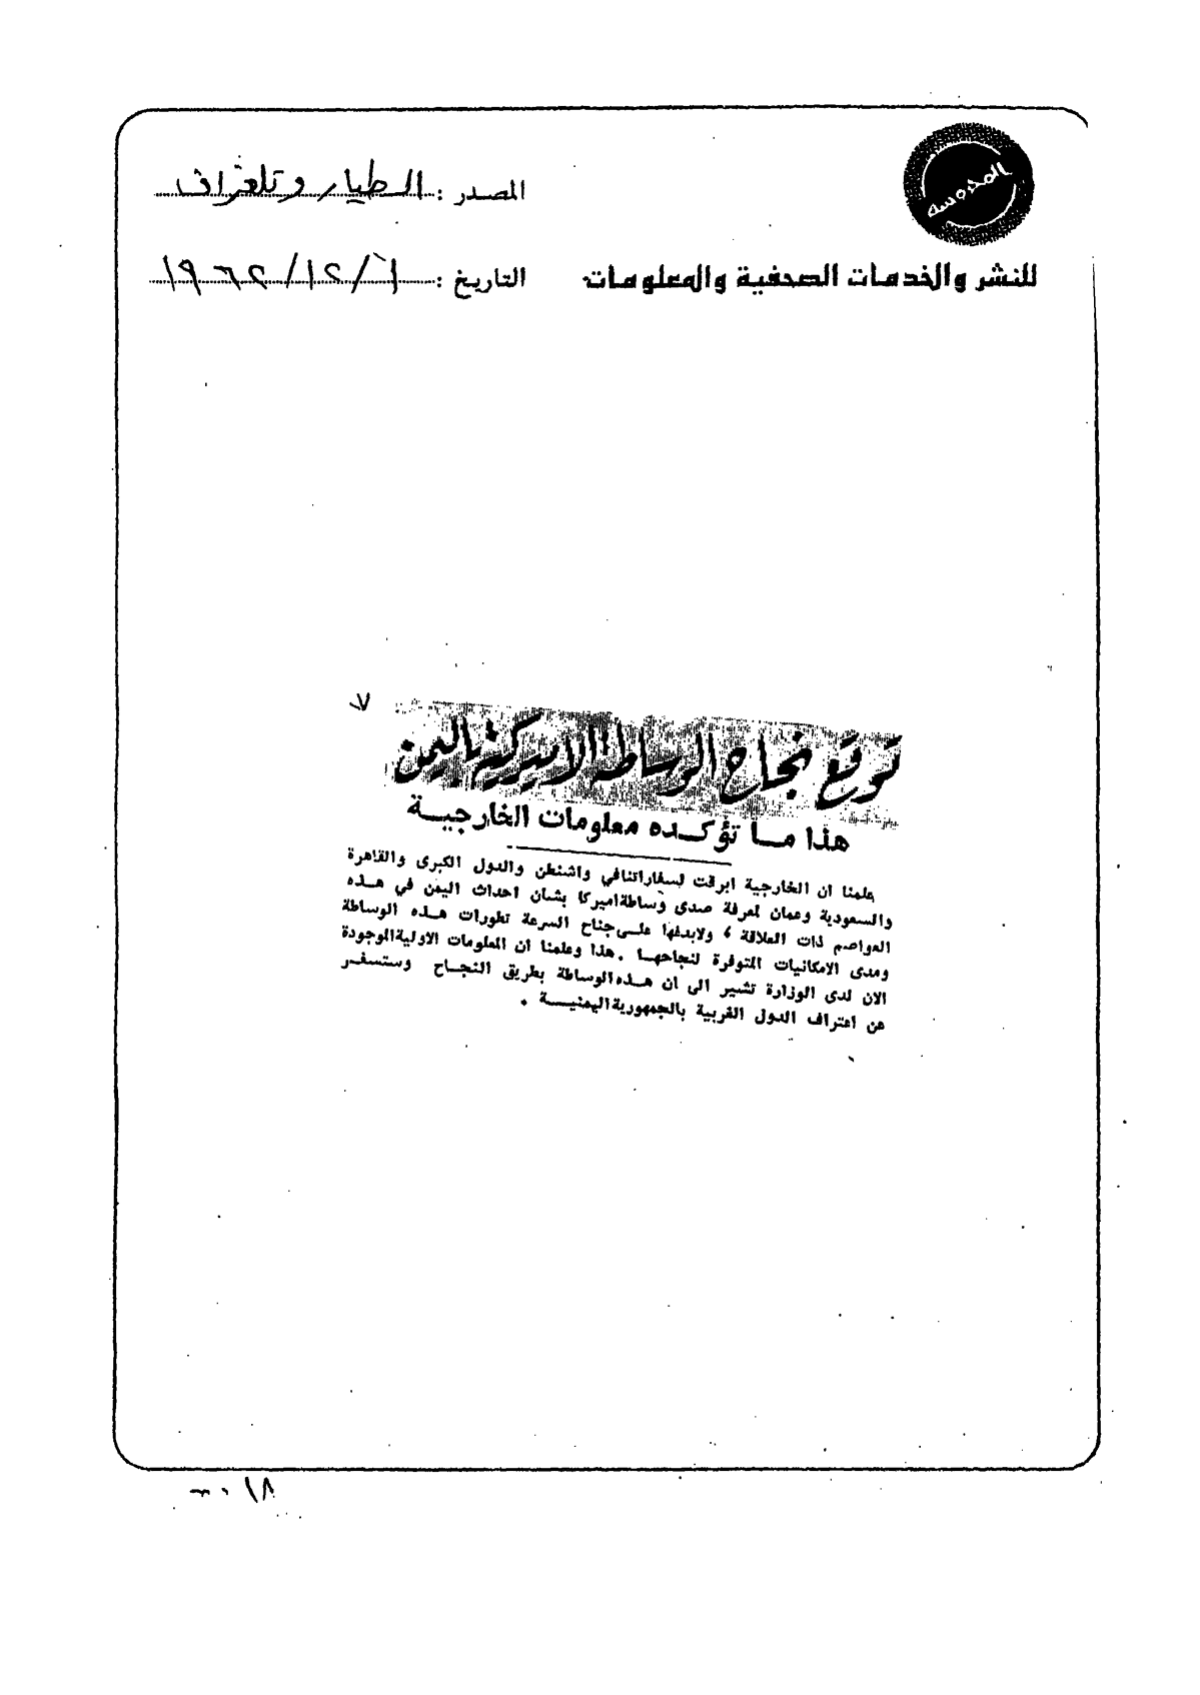 المحروسة
المصدر : الطيار وتلغراف
للنشر والخدمات الصحفية والمعلومات
التاريخ : ٦/١٢/١٩٦٢
٧
توقع نجاح الوساطة الاميركية باليمن
هذا مــا تؤكــده معلومات الخارجيــة
علمنا ان الخارجية ابرقت لسفاراتنافي واشنطن والدول الكبرى والقاهرة
والسعودية وعمان لمعرفة صدى وساطةاميركا بشان احداث اليمن في هــذه
العواصم ذات العلاقة ، ولابدغها علـىجناح السرعة تطورات هــذه الوساطة
ومدى الامكانيات المتوفرة لنجاحهـا . هذا وعلمنا ان المعلومات الاوليةالموجودة
الان لدى الوزارة تشير الى ان هــذهالوساطة بطريق النجـاح وستسفـر
عن اعتراف الدول الغربية بالجمهوريةاليمنيــة .